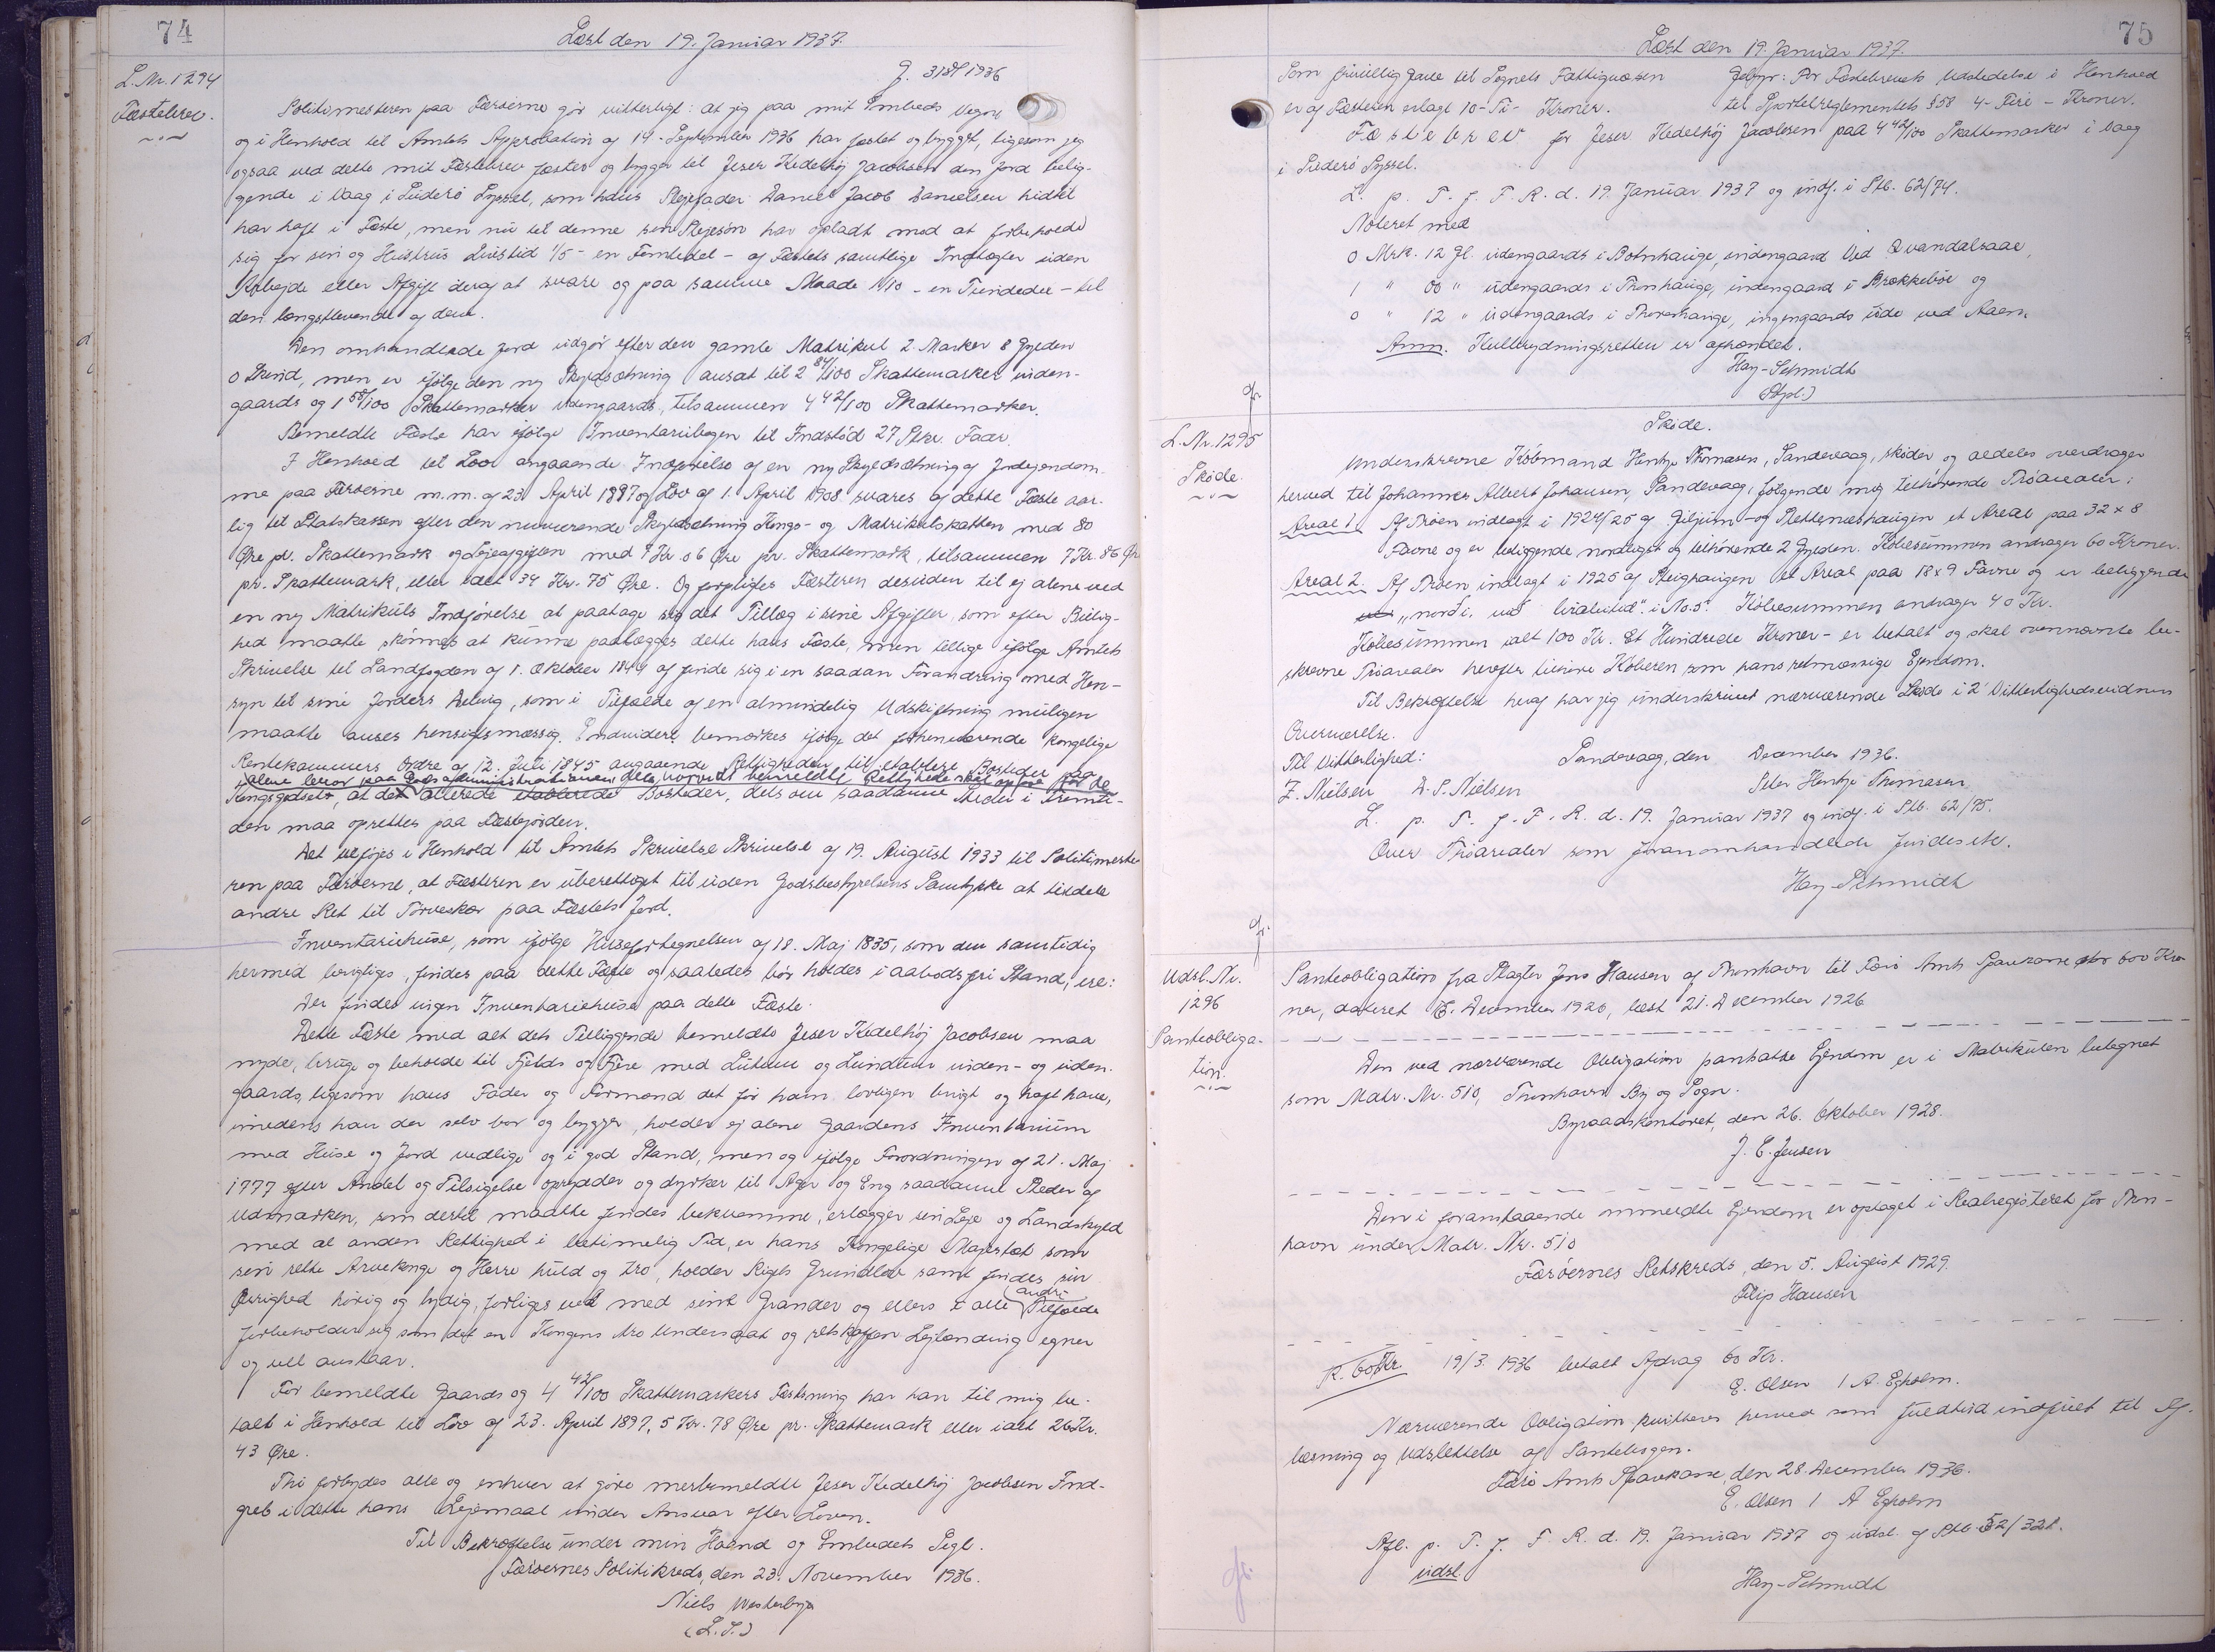 74
Læst den 19. Januar 1937.
L.Nr. 1294
Fæstebrev.
J. 318/1936
Politimesteren paa Færøerne gør vitterligt: at jeg paa mit Embeds Vegne
og i Henhold til Amtets Approbation af 14. September 1936 har fæstet og bygget, ligesom jeg
ogsaa ved dette mit Fæstebrev fæster og bygger til Jeser Kedelhøj Jacobsen den Jord belig-
gende i Vaag i Suderø Syssel, som hans Plejefader Daniel Jacob Danielsen hidtil
har haft i Fæste, men nu til denne sin Plejesøn har opladt mod at forbeholde
sig for sin og Hustrus Livstid 1/5 - en Femtedel - af Fæstets samtlige Indtægter uden
Arbejde eller Afgift deraf at svare og paa samme Maade 1/10 - en Tiendedel - til
den længstlevende af dem.
Den omhandlede Jord udgør efter den gamle Matrikul 2 Marker 8 Gylden
0 Skind, men er ifølge den ny Skyldsætning ansat til 2 84/100 Skattemarker inden-
gaards og 1 58/100 Skattemarker udengaards, tilsammen 4 42/100 Skattemarker.
Bemeldte Fæste har ifølge Inventariebogen til Indstød 27 Stkr. Faar.
I Henhold til Lov angaaende Indførelse af en ny Skyldsætning af Jordejendom-
me paa Færøerne m.m. af 23 April 1897 og Lov af 1. April 1908 svares af dette Fæste aar-
lig til Statskassen efter den nuværende Skyldsætning Konge- og Matrikulskatten med 80
Øre pr. Skattemark og Lejeafgiften med 7 Kr. 06 Øre pr. Skattemark, tilsammen 7 Kr. 86 Øre
pr. Skattemark, eller ialt 34 Kr. 75 Øre. Og forpligtes Fæsteren desuden til ej alene ved
en ny Matrikuls Indførelse at paatage sig det Tillæg i sine Afgifter, som efter Billig-
hed maatte skønnes at kunne paalægges dette hans Fæste, men tillige ifølge Amtets
Skrivelse til Landfogden af 1. Oktober 1844 at finde sig i en saadan Forandring med Hen-
syn til sine Jorders Deling, som i Tilfælde af en almindelig Udskiftning muligen
maatte anses hensigtsmæssig. Endvidere bemærkes ifølge det forhenværende kongelige
Rentekammers Ordre af 12. Juli 1845 angaaende Rettigheden til etablere Bosteder paa
alene beror paa Godsadministrationen dels hvorvidt bemeldte Rettighed skal for de
Kongsgodset, at det allerede etablerede Bosteder, dels om saadanne Steder i Fremti-
den maa oprettes paa Fæstejorden.
Det tilføjes i Henhold til Amtets Skrivelse Skrivelse af 19. August 1933 til Politimeste-
ren paa Færøerne, at Fæsteren er uberettiget til uden Godsbestyrelsens Samtykke at tildele
andre Ret til Tørveskær paa Fæstets Jord.
Inventariehuse, som ifølge Husefortegnelsen af 18. Maj 1835, som den samtidig
hermed berigtiges, findes paa dette Fæste og saaledes bør holdes i aabodsfri Stand, ere:
Der findes ingen Inventariehuse paa dette Fæste.
Dette Fæste med alt dets Tilliggende bemeldte Jeser Kedelhøj Jacobsen maa
nyde, bruge og beholde til Fjelds og Fjere med Lutum og Lundum inden- og uden-
gaards, ligesom hans Fader og Formand det før ham lovligen brugt og haft have,
imedens han der selv bor og bygger, holder ej alene Gaardens Inventarium
med Huse og Jord vedlige og i god Stand, men og ifølge Forordningen af 21. Maj
1777 efter Andel og Tilsigelse oprydder og dyrker til Ager og Eng saadanne Steder af
Udmarken, som dertil maatte findes bekvemme, erlægger sin Leje og Landskyld
med al anden Rettighed i betimelig Tid, er hans Kongelige Majestæt som
sin rette Arvekonge og Herre huld og tro, holder Rigets Grundlov samt findes sin
Øvrighed hørig og lydig, forliges vel med sine Grander og ellers i alle andre Tilfælde
forbeholder sig som det en Kongens tro Undersaat og retskaffen Lejlænding egner
og vell anstaar.
For bemeldte Gaards og 4 42/100 Skattemarkers Fæstning har han til mig be-
talt i Henhold til Lov af 23. April 1897, 5 Kr. 78 Øre pr. Skattemark eller ialt 26 Kr.
43 Øre.
Thi forbydes alle og enhver at gøre merbemeldte Jeser Kedelhøj Jacobsen Ind-
greb i dette hans Lejemaal under Ansvar efter Loven.
Til Bekræftelse under min Haand og Embedets Segl.
Færøernes Politikreds, den 23. November 1936.
Niels Westerbye
(L.S.)
75
Læst den 19. Januar 1937.
Som frivillig Gave til Sognets Fattigvæsen Gebyr: For Fæstebrevets Udstedelse i Henhold
er af Fæsteren erlagt 10-Ti- Kroner. til Sportelreglementets §58 4- Fire - Kroner.
Fæstebrev for Jeser Kedelhøj Jacobsen paa 4 42/100 Skattemarker i Vaag
i Suderø Syssel.
L. p. T. f. F. R. d. 19. Januar 1937 og indf. i Ptb. 62/74.
Noteret med
0 Mrk. 12 Gl. udengaards i Botnhauge, indengaard Ved Qvandalsaae,
1 " 00 " udengaards i Thorshauge, indengaard i Brekkebøe og
0 " 12 " udengaards i Thorshauge, ingengaards ude ved Aaen.
Anm. Kulbrydningsretten er afhændet.
Hay-Schmidt
(Stpl.)
L. Nr. 1295
Skøde.
Skøde.
Underskrevne Købmand Hentze Thomasen, Sandevaag, skøder og aldeles overdrager
herved til Johannes Albert Johansen, Sandevaag, følgende mig tilhørende Trøarealer:
Areal 1. Af Trøen indlagt i 1924/25 af Giljum- og Slettenæshaugen et Areal paa 32 x 8
Favne og er beliggende nordligst og tilhørende 2 Gylden. Købesummen andrager 60 Kroner.
Areal 2. Af Trøen indlagt i 1925 af Steighaugen et Areal paa 18x9 Favne og er beliggende
"nord i. No. 5." Købesummen andrager 40 Kr.
Købesummen ialt 100 Kr. Et Hundrede Kroner - er betalt og skal ovennævnte be-
skrevne Trøarealer herefter tilhøre Køberen som hans retmæssige Ejendom.
Til Bekræftelse heraf har jeg underskrevet nærværende Skøde i 2 Vitterlighedsvidners
Overværelse.
Til Vitterlighed: Sandevaag, den December 1936.
Z. Nielsen D.S. Nielsen Peter Hentze Thomasen
L. p. T. f. F. R. d. 19. Januar 1937 og indf. i Ptb. 62/75.
Over Trøarealer som foranomhandlede findes etc.
Hay-Schmidt
Udsl. Nr.
1296
Panteobliga-
tion.
Panteobligation fra Slagter Jens Hansen af Thorshavn til Færø Amts Sparekasse stor 600 Kro-
ner, dateret 6. December 1926, læst 21. December 1926
Den ved nærværende Obligation pantsatte Ejendom er i Matrikulen betegnet
som Matr. Nr. 510, Thorshavn By og Sogn.
Byraadskontoret, den 26. Oktober 1928.
J. C. Jensen
Den i foranstaaende ommeldte Ejendom er optaget i Realregisteret for Thors-
havn under Matr. Nr. 510
Færøernes Retskreds, den 5. August 1929.
Filip Hansen
K. 60 Kr. 19/3. 1936 betalt Afdrag 60 Kr.
E. Olsen / A. Egholm.
Nærværende Obligation kvitteres herved som fuldtud indfriet til Af-
læsning og Udslettelse af Pantebogen.
Færø Amts Sparekasse, den 28. December 1936.
E. Olsen / A Egholm
Afl. p. T. f. F. R. d. 19. Januar 1937 og udsl. af Ptb. 52/321.
udsl.
Hay-Schmidt